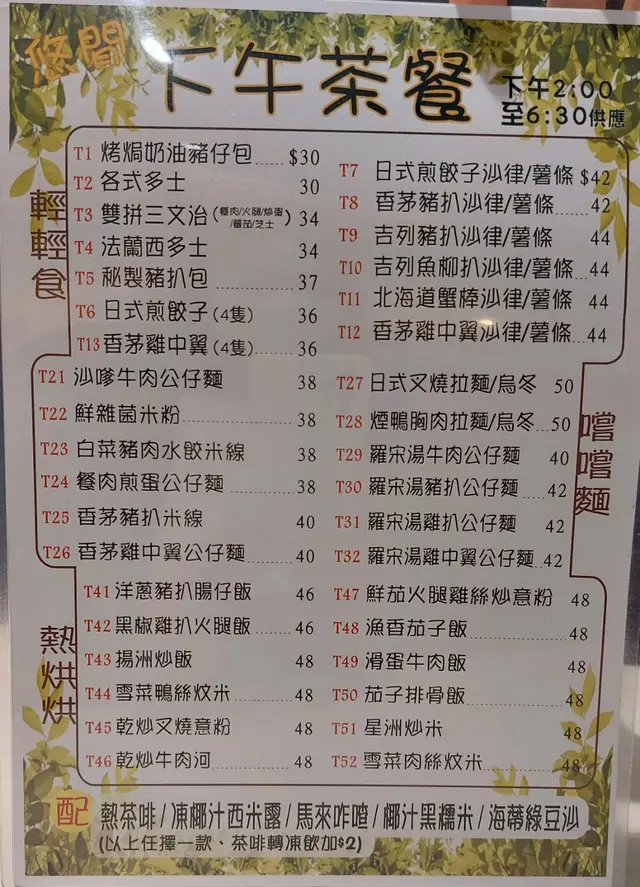 悠閒 下午茶餐
下午2:00
至6:30供應
輕輕食
T1 烤焗奶油豬仔包......$30
T2 各式多士 30
T3 雙拼三文治(餐肉/火腿/炒蛋/蕃茄/芝士) 34
T4 法蘭西多士 34
T5 秘製豬扒包 37
T6 日式煎餃子(4隻) 36
T13 香茅雞中翼(4隻) 36
T7 日式煎餃子沙律/薯條 $42
T8 香茅豬扒沙律/薯條 42
T9 吉列豬扒沙律/薯條 44
T10 吉列魚柳扒沙律/薯條 44
T11 北海道蟹棒沙律/薯條 44
T12 香茅雞中翼沙律/薯條 44
嚐嚐麵
T21 沙嗲牛肉公仔麵 38
T22 鮮雜菌米粉 38
T23 白菜豬肉水餃米線 38
T24 餐肉煎蛋公仔麵 38
T25 香茅豬扒米線 40
T26 香茅雞中翼公仔麵 40
T27 日式叉燒拉麵/烏冬 50
T28 煙鴨胸肉拉麵/烏冬 50
T29 羅宋湯牛肉公仔麵 40
T30 羅宋湯豬扒公仔麵 42
T31 羅宋湯雞扒公仔麵 42
T32 羅宋湯雞中翼公仔麵 42
熱烘烘
T41 洋蔥豬扒腸仔飯 46
T42 黑椒雞扒火腿飯 46
T43 揚洲炒飯 48
T44 雪菜鴨絲炆米 48
T45 乾炒叉燒意粉 48
T46 乾炒牛肉河 48
T47 鮮茄火腿雞絲炒意粉 48
T48 漁香茄子飯 48
T49 滑蛋牛肉飯 48
T50 茄子排骨飯 48
T51 星洲炒米 48
T52 雪菜肉絲炆米 48
配 熱茶啡/凍椰汁西米露/馬來咋喳/椰汁黑糯米/海蒂綠豆沙
(以上任擇一款、茶啡轉凍飲加$2)